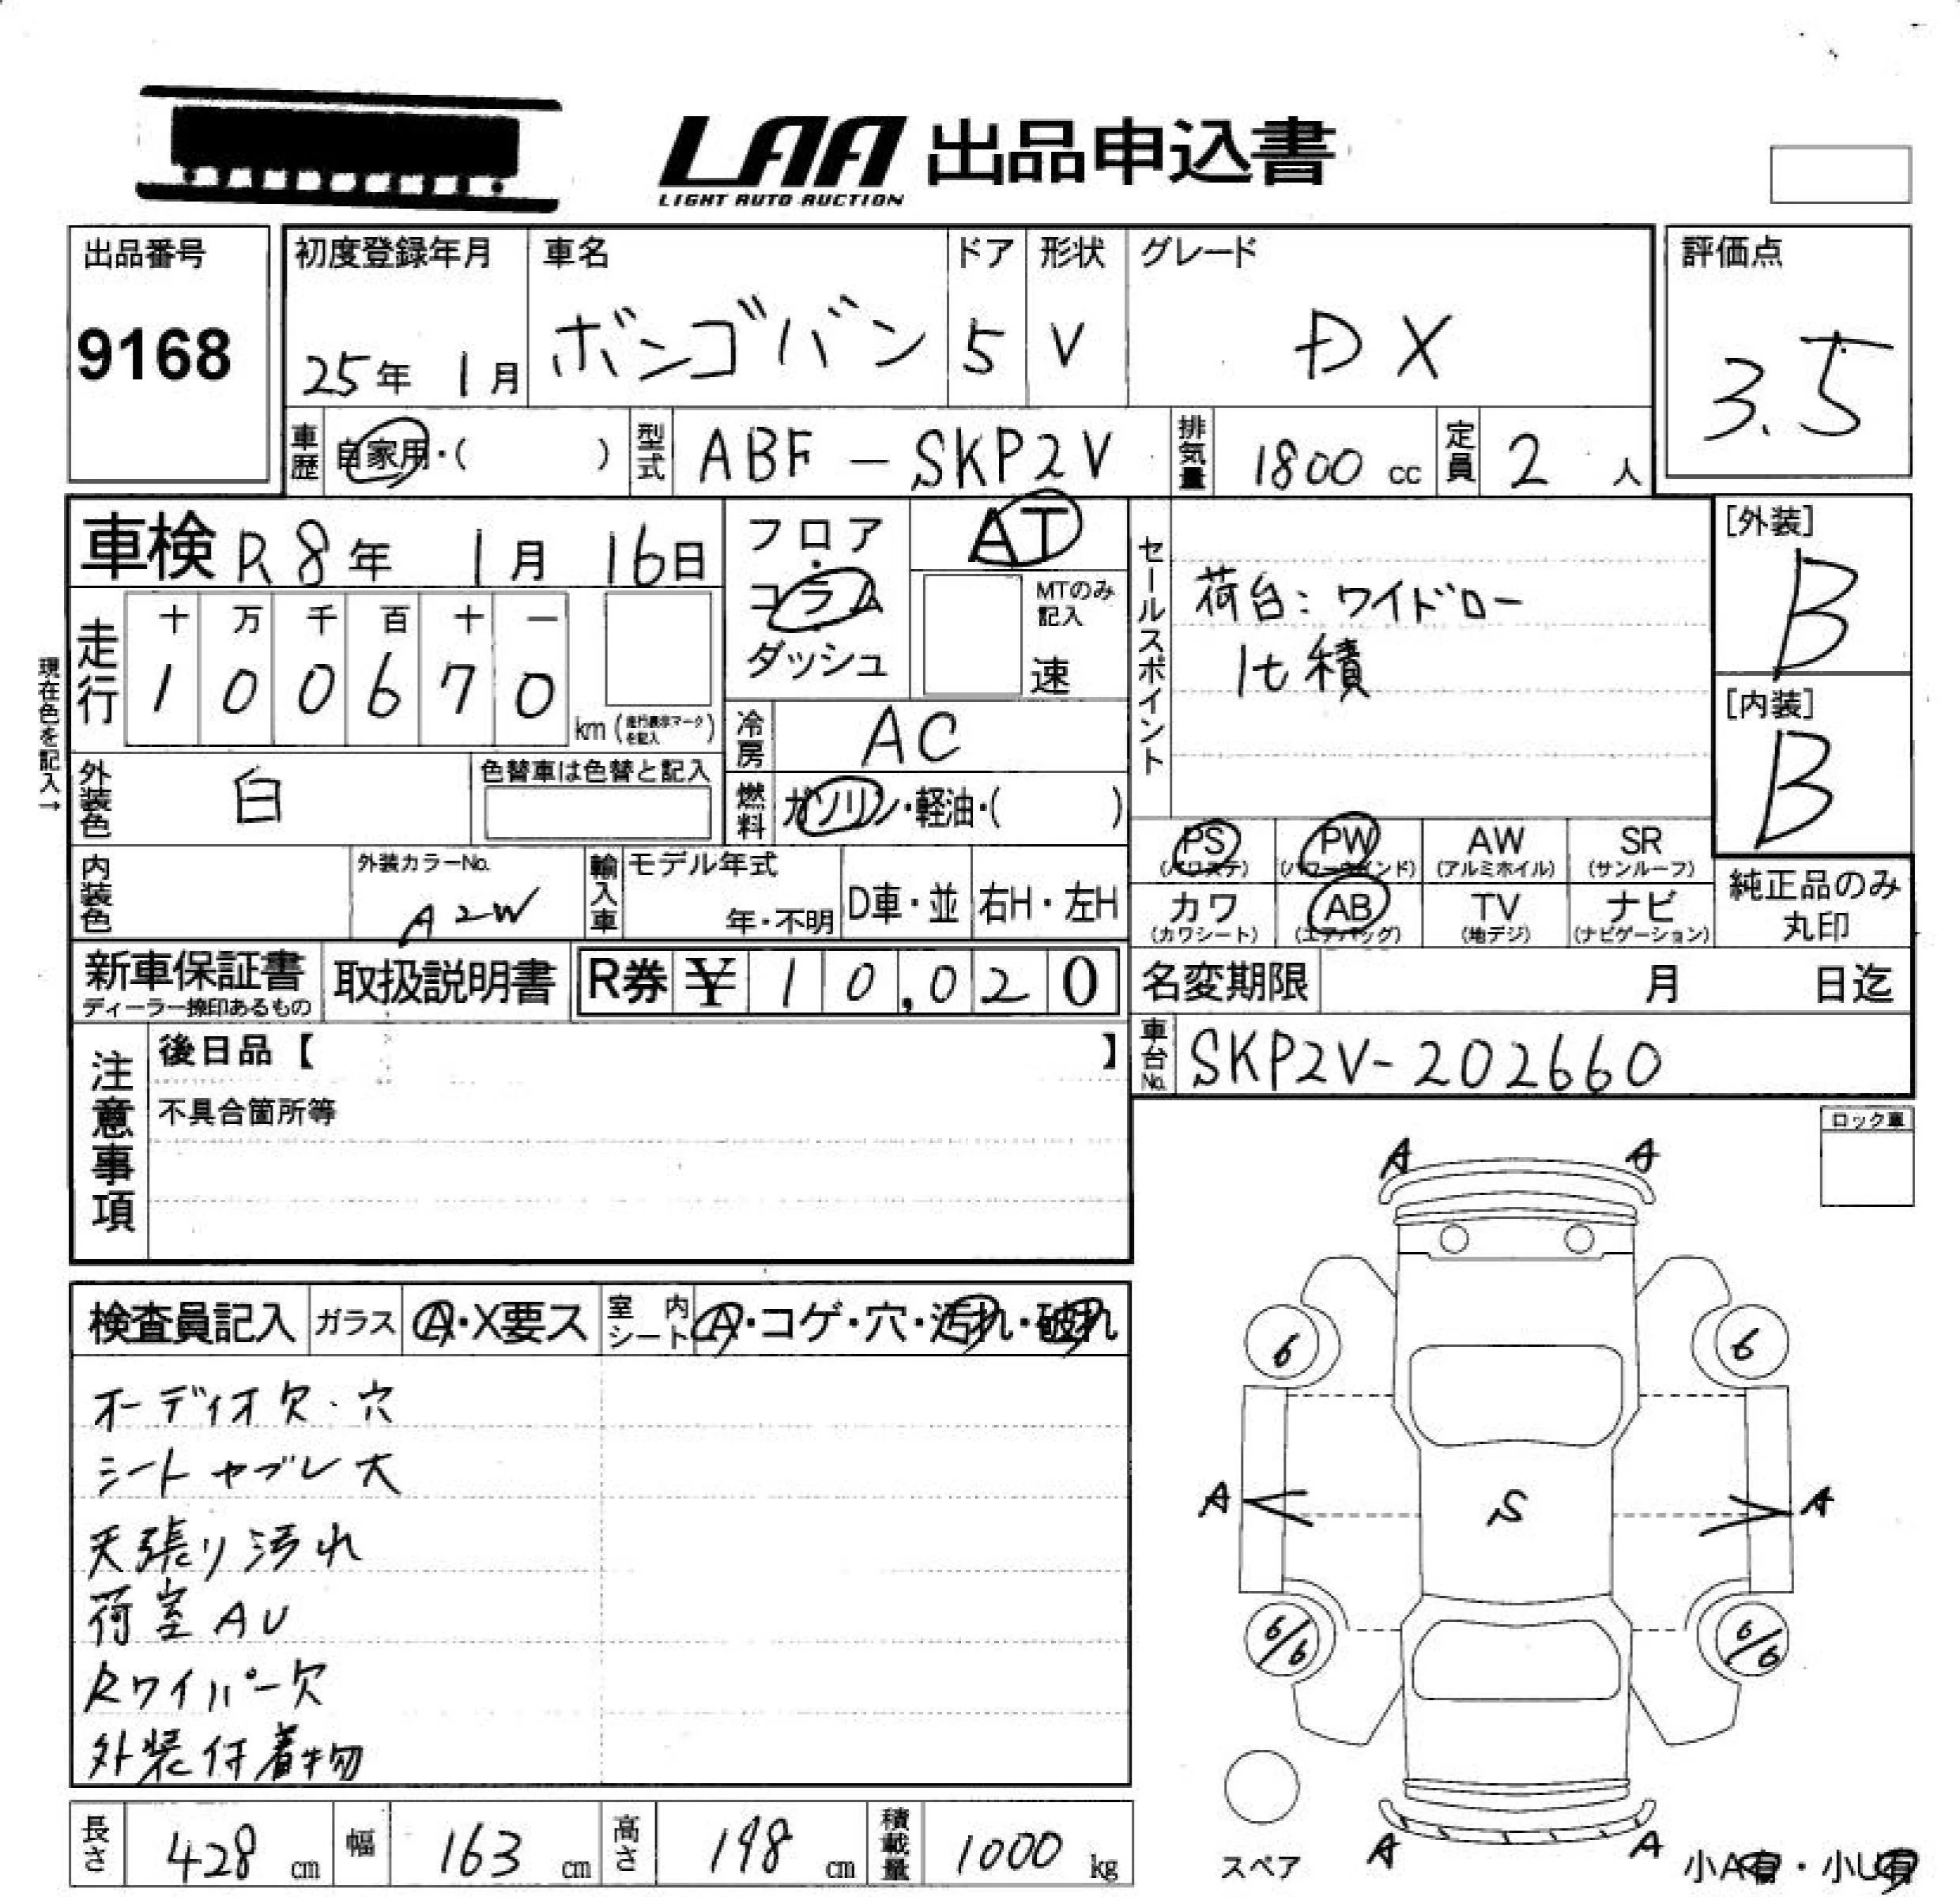 LAA 出品申込書
LIGHT AUTO AUCTION
出品番号
9168
初度登録年月
25年 1月
車名
ボンゴバン
ドア
5
形状
V
グレード
DX
評価点
3.5
車歴 自家用・( )
型式 ABF-SKP2V
排気量 1800 cc
定員 2 人
車検 R8年 1月 16日
フロア・コラム・ダッシュ
AT
MTのみ記入
速
セールスポイント
荷台:ワイドロー
1t積
[外装]
B
[内装]
B
現在色を記入→
走行
十 万 千 百 十 一
1 0 0 6 7 0
km (走行表示マークを記入)
冷房 AC
外装色 白
色替車は色替と記入
燃料 ガソリン・軽油・( )
PS (パワステ)
PW (パワーウインド)
AW (アルミホイル)
SR (サンルーフ)
カワ (カワシート)
AB (エアバッグ)
TV (地デジ)
ナビ (ナビゲーション)
純正品のみ丸印
内装色
外装カラーNo.
A2W
輸入車
モデル年式
年・不明
D車・並
右H・左H
新車保証書
ディーラー捺印あるもの
取扱説明書
R券 ¥ 10,020
名変期限 月 日迄
車台No. SKP2V-202660
注意事項
後日品【 】
不具合箇所等
ロック車
検査員記入
ガラス A・X要ス
室内シート A・コゲ・穴・汚れ・破れ
オーディオ欠・穴
シートヤブレ大
天張り汚れ
荷室AU
Rワイパー欠
外装付着物
A A
6 6
A S A
6/6 6/6
A A
スペア
小A有・小U有
長さ 428 cm
幅 163 cm
高さ 198 cm
積載量 1000 kg